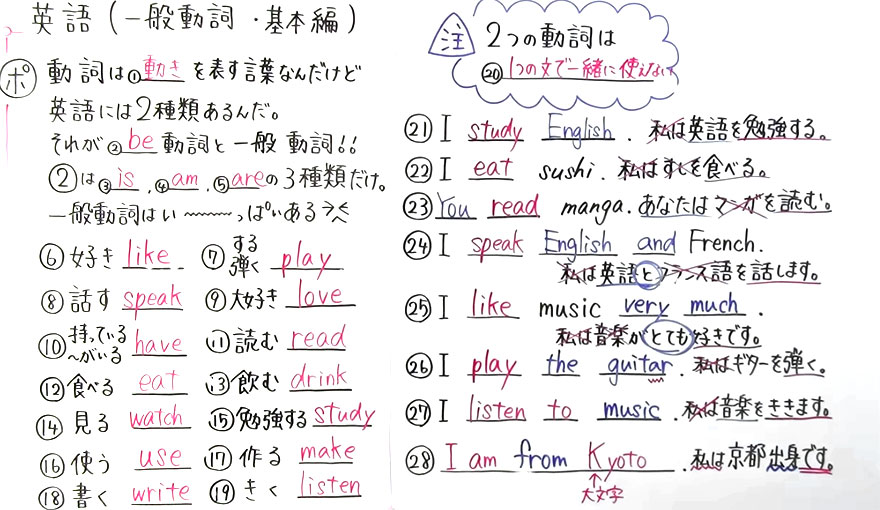 英語(一般動詞・基本編)
ポ 動詞は①動きを表す言葉なんだけど
英語には2種類あるんだ。
それが②be動詞と一般動詞!!
②は③is、④am、⑤areの3種類だけ。
一般動詞はい〜〜〜っぱいあるよ
⑥好き like ⑦する弾く play
⑧話す speak ⑨大好き love
⑩持っている〜がいる have ⑪読む read
⑫食べる eat ⑬飲む drink
⑭見る watch ⑮勉強する study
⑯使う use ⑰作る make
⑱書く write ⑲きく listen
注 2つの動詞は
⑳1つの文で一緒に使えない
㉑I study English. 私は英語を勉強する。
㉒I eat sushi. 私はすしを食べる。
㉓You read manga. あなたはマンガを読む。
㉔I speak English and French.
私は英語とフランス語を話します。
㉕I like music very much.
私は音楽がとても好きです。
㉖I play the guitar. 私はギターを弾く。
㉗I listen to music. 私は音楽をききます。
㉘I am from Kyoto. 私は京都出身です。
大文字